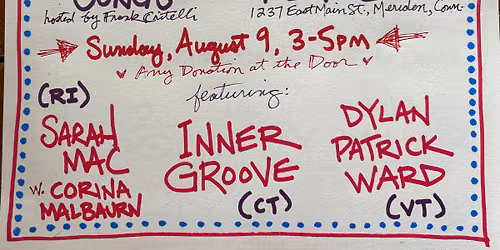 hosted by Frank Critelli
1237 East Main St, Meriden, Conn.
Sunday, August 9, 3-5pm
Any Donation at the Door
featuring:
(RI)
SARAH
MAC
W. CORINA
MALBAURN
INNER
GROOVE
(CT)
DYLAN
PATRICK
WARD
(VT)